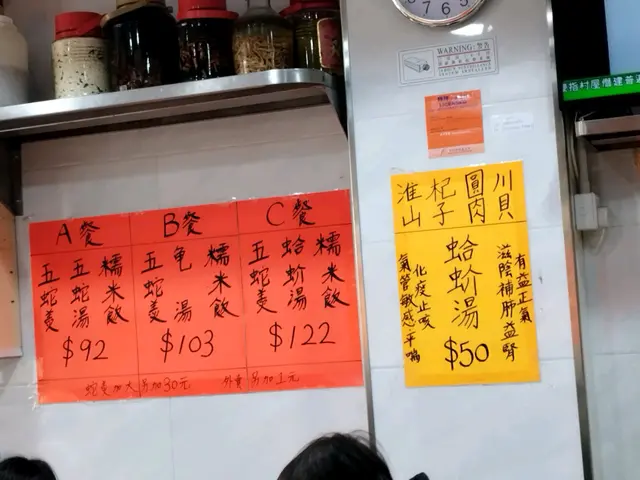 A餐
五蛇羹
五蛇湯
糯米飯
$92
B餐
五蛇羹
龟湯
糯米飯
$103
C餐
五蛇羹
蛤蚧湯
糯米飯
$122
蛇羹加大另加30元 外賣另加1元
川貝
圓肉
杞子
淮山
蛤蚧湯
$50
有益正氣
滋陰補肺益腎
化痰止咳
氣管敏感平喘
WARNING:警告
7 6 5